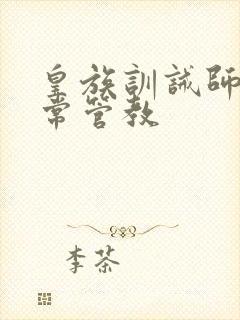 皇族訓誡師
常管教
李茶